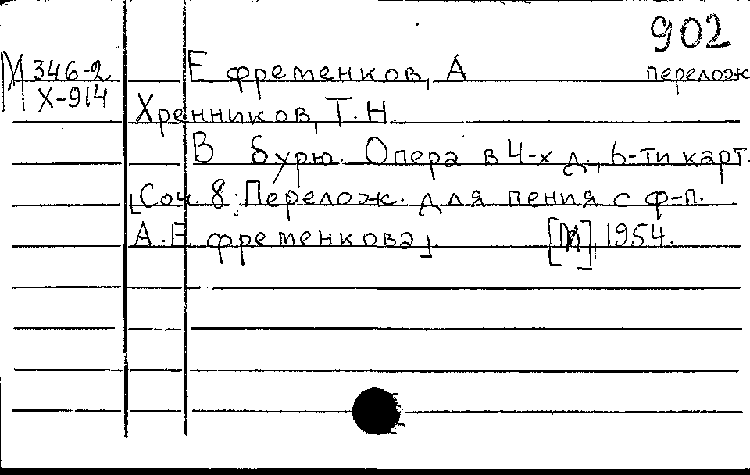 902
М 346-2 Ефременков, А перелож
Х-914
Хренников, Т. Н.
В бурю. Опера в 4-х д., 6-ти карт.
[Соч 8. Перелож. для пения с ф-п.
А. Ефременкова]. [М], 1954.